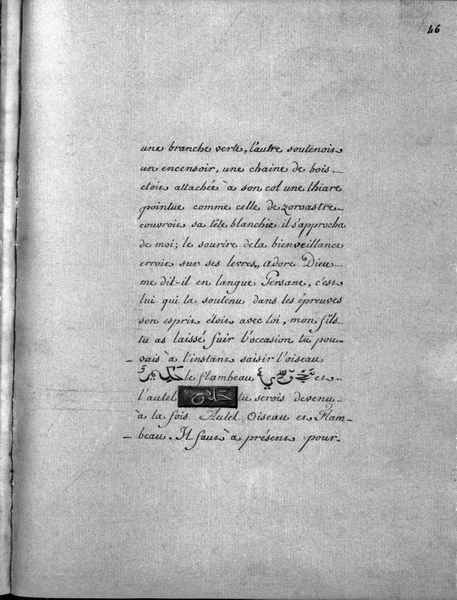 46
une branche verte, l'autre soutenois
un encensoir, une chaine de bois
etois attachée à son col une thiare
pointue comme celle de zoroastre
couvroit sa tête blanchie il s'approcha
de moi; le sourire de la bienveillance
erroit sur ses levres, adore Dieu
me dit-il en langue Persane, c'est
lui qui la soutenu dans les épreuves
son esprit etois avec toi, mon fils
tu as laissé fuir l'occasion tu pou-
vais à l'instant saisir l'oiseau
le flambeau et
l'autel tu serois devenu
à la fois Autel Oiseau et Flam-
beau. Il faut à présent pour